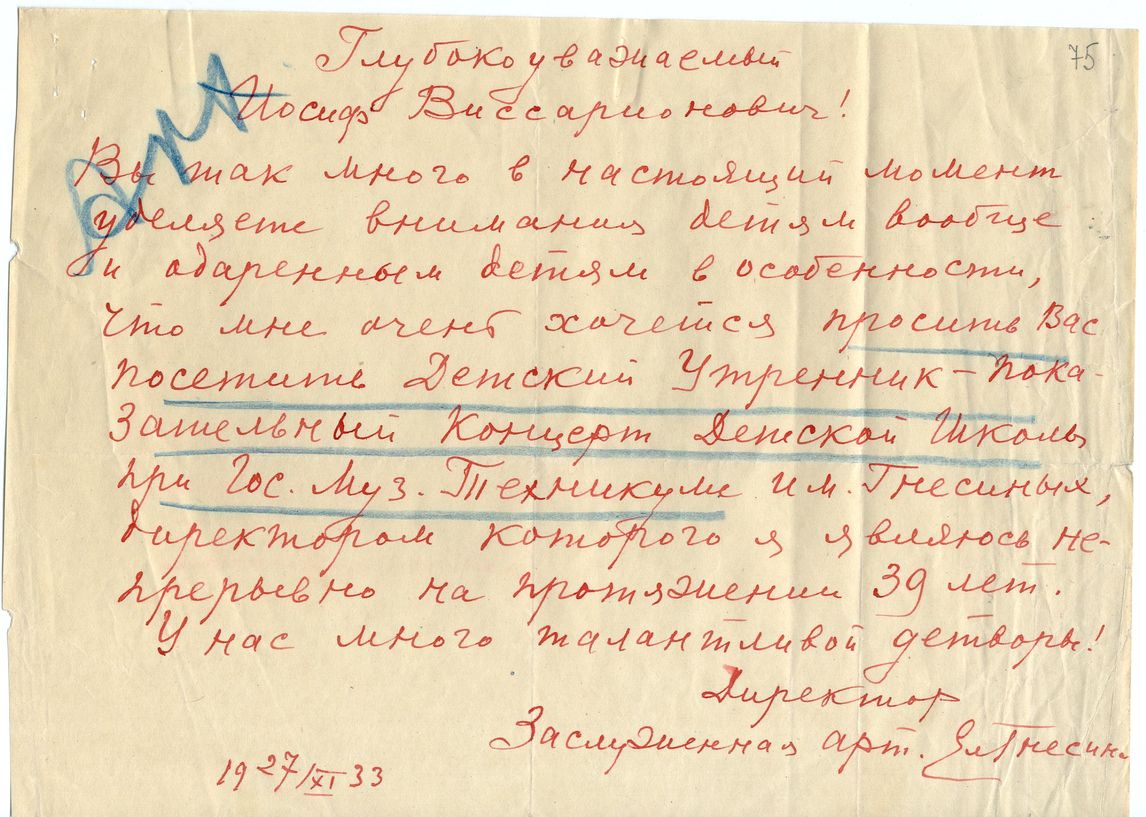 75
Глубокоуважаемый
Иосиф Виссарионович!
Вы так много в настоящий момент
уделяете внимания детям вообще
и одаренным детям в особенности,
что мне очень хочется просить Вас
посетить Детский Утренник – пока-
зательный Концерт Детской Школы
при Гос. Муз. Техникуме им. Гнесиных,
директором которого я являюсь не-
прерывно на протяжении 39 лет.
У нас много талантливой детворы!
Директор
Заслуженная арт. Ел Гнесина
19 27/XI 33